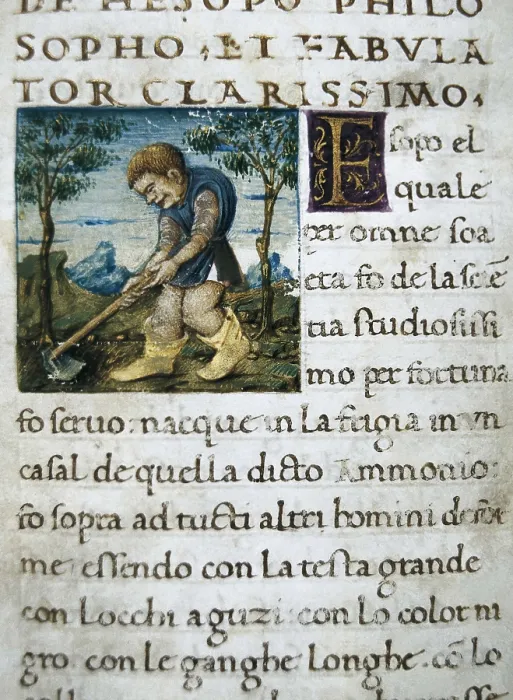 DE HESOPO PHILO
SOPHO, ET FABVLA
TOR CLARISSIMO,
Esopo el
quale
per omne soa
eta fo de la sciē
tia studiosissi
mo per fortuna
fo seruo: nacque in La frigia in vn
casal de quella dicto Ammonio:
fo sopra ad tucti altri homini defor
me essendo con La testa grande
con Locchi aguzi con Lo color ni
gro con le ganghe Longhe. cō lo